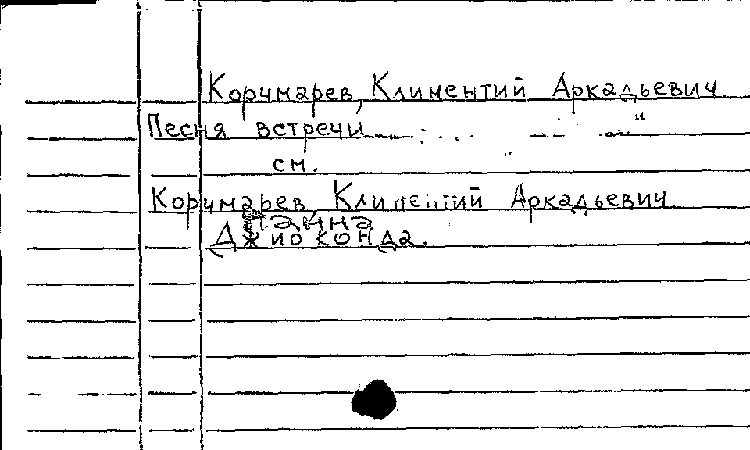 Корчмарев, Климентий Аркадьевич
Песня встречи
см.
Корчмарев, Климентий Аркадьевич
Джиоконда.